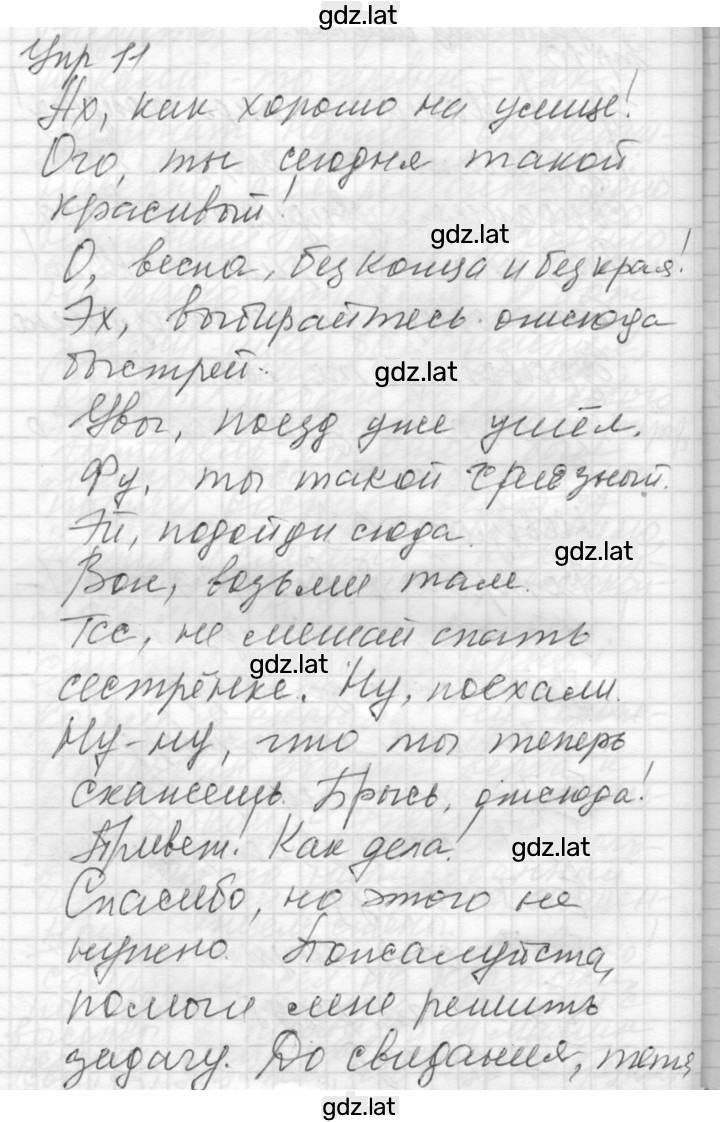 gdz.lat
Упр 11
Ах, как хорошо на улице!
Ого, ты сегодня такой
красивый!
gdz.lat
О, весна, без конца и без края!
Эх, выбирайтесь отсюда
быстрей.
gdz.lat
Увы, поезд уже ушёл.
Фу, ты такой грязный.
Эй, подойди сюда.
gdz.lat
Вон, возьми там.
Тсс, не мешай спать
gdz.lat
сестрёнке. Ну, поехали.
Ну-ну, что ты теперь
скажешь. Брысь, отсюда!
Привет! Как дела!
gdz.lat
Спасибо, но этого не
нужно. Пожалуйста,
помоги мне решить
задачу. До свидания, тетя
gdz.lat